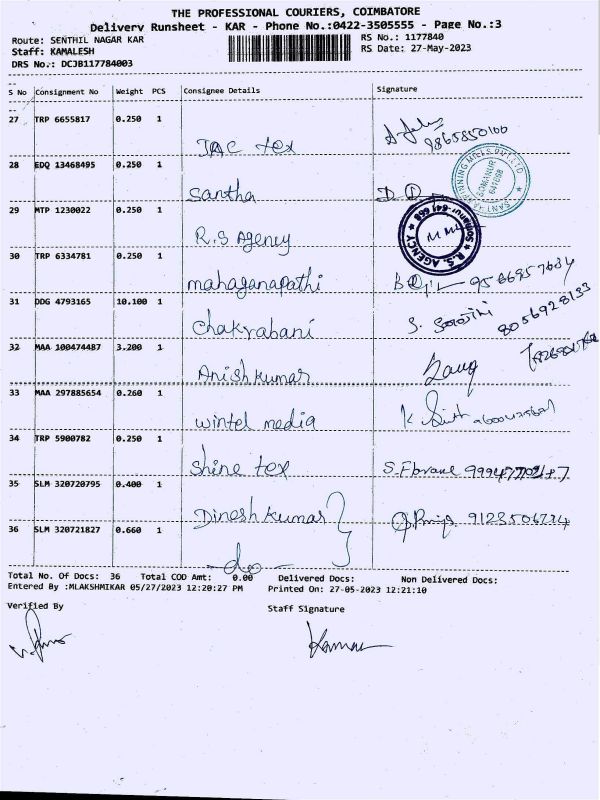 THE PROFESSIONAL COURIERS, COIMBATORE
Delivery Runsheet - KAR - Phone No.:0422-3505555 - Page No.:3
Route: SENTHIL NAGAR KAR
RS No.: 1177840
Staff: KAMALESH
RS Date: 27-May-2023
DRS No.: DCJB117784003
S No Consignment No Weight PCS Consignee Details Signature
27 TRP 6655817 0.250 1
JAC tex 9865850100
28 EDQ 13468495 0.250 1
Santha
29 MTP 1230022 0.250 1
R.S Agency
R.S. AGENCY
30 TRP 6334781 0.250 1
mahaganapathi
31 DDG 4793165 10.100 1
chakrabani S. Sarojini 8056928133
32 MAA 100474487 3.200 1
Anish kumar
33 MAA 297885654 0.260 1
wintel media
34 TRP 5900782 0.250 1
Shine tex
35 SLM 320720795 0.400 1
Dinesh kumar
36 SLM 320721827 0.660 1
-do-
Total No. Of Docs: 36 Total COD Amt: 0.00 Delivered Docs: Non Delivered Docs:
Entered By :MLAKSHMIKAR 05/27/2023 12:20:27 PM Printed On: 27-05-2023 12:21:10
Verified By Staff Signature